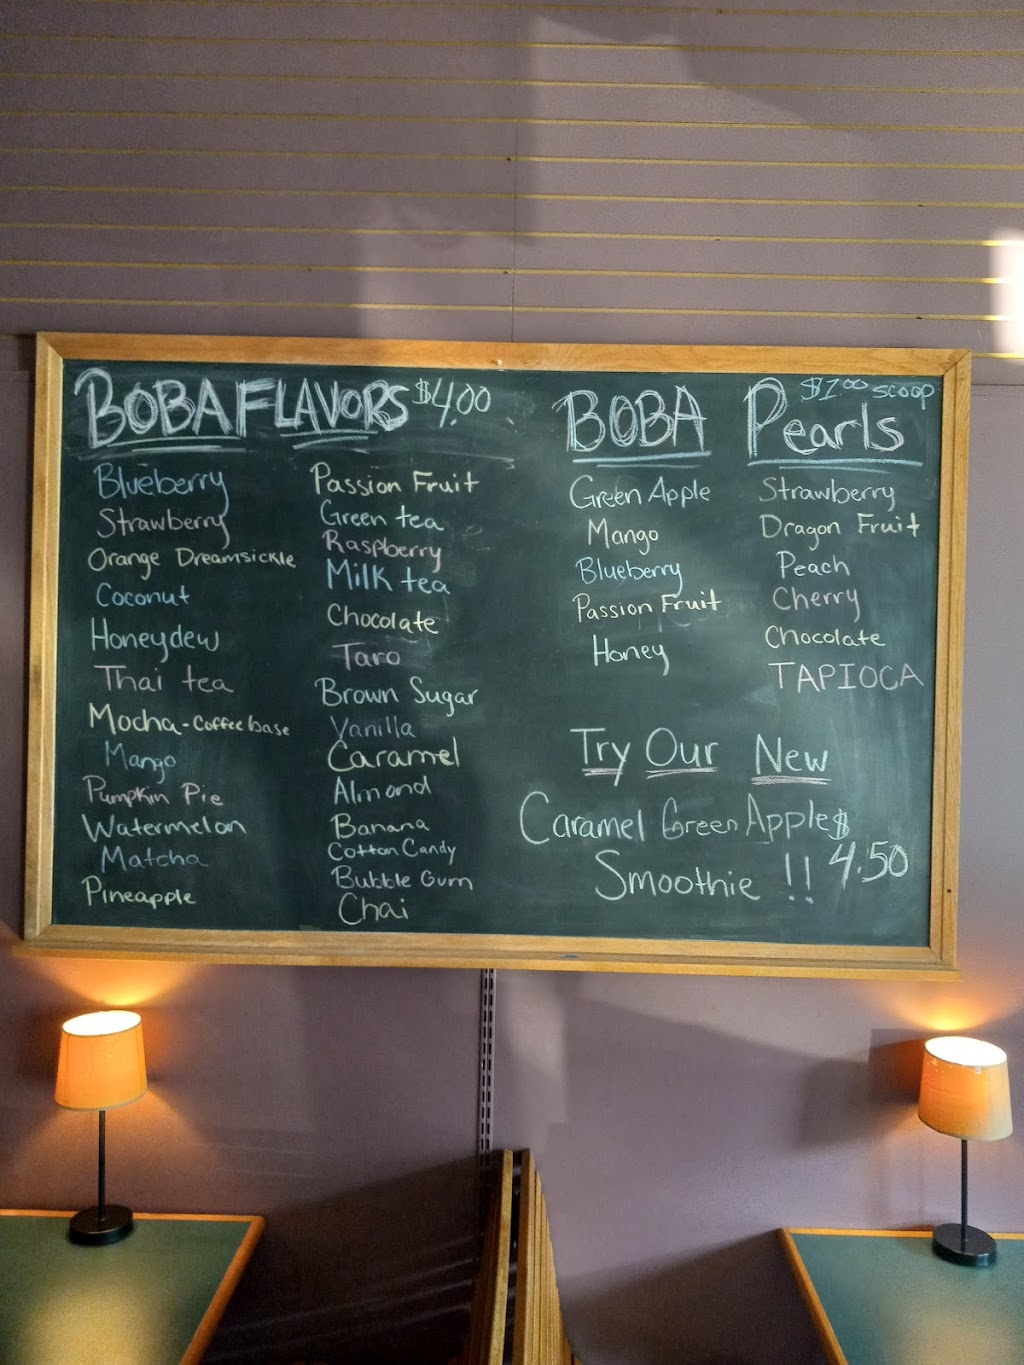 BOBA FLAVORS $4.00
Blueberry
Strawberry
Orange Dreamsickle
Coconut
Honeydew
Thai tea
Mocha-Coffee base
Mango
Pumpkin Pie
Watermelon
Matcha
Pineapple
Passion Fruit
Green tea
Raspberry
Milk tea
Chocolate
Taro
Brown Sugar
Vanilla
Caramel
Almond
Banana
Cotton Candy
Bubble Gum
Chai
BOBA Pearls $1.00 scoop
Green Apple
Mango
Blueberry
Passion Fruit
Honey
Strawberry
Dragon Fruit
Peach
Cherry
Chocolate
TAPIOCA
Try Our New
Caramel Green Apple $
Smoothie !! 4.50